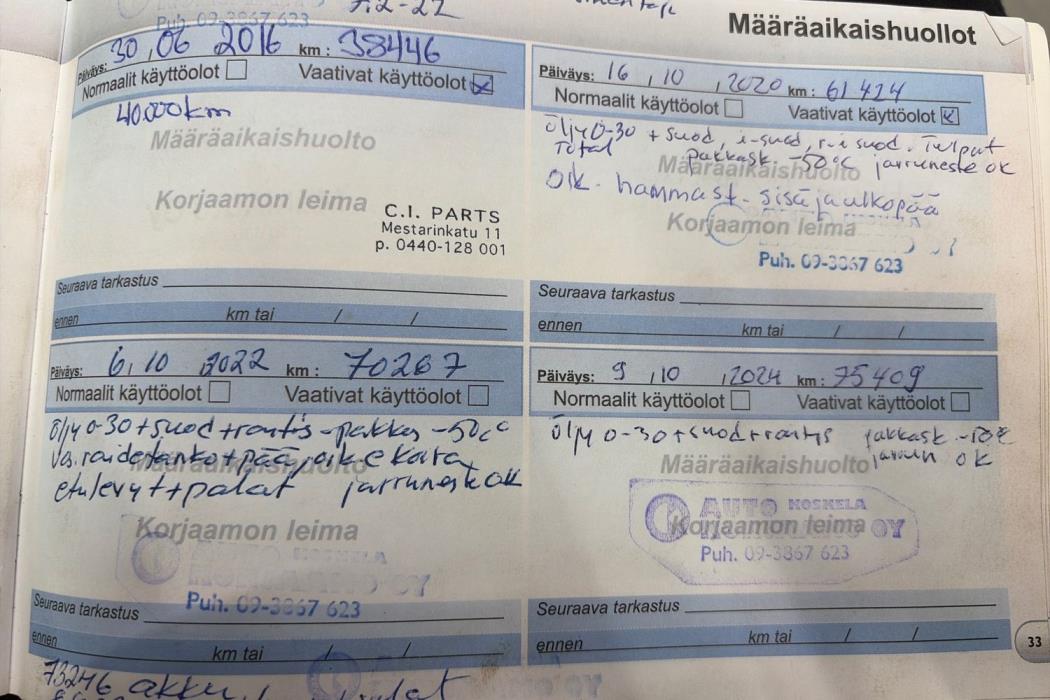 Puh. 09-3867 623
Määräaikaishuollot
Päiväys: 30 , 06 2016 km : 38446
Normaalit käyttöolot Vaativat käyttöolot
40000km
Määräaikaishuolto
Korjaamon leima
C.I. PARTS
Mestarinkatu 11
p. 0440-128 001
Seuraava tarkastus
ennen km tai / /
Päiväys: 16 , 10 , 2020 km : 61424
Normaalit käyttöolot Vaativat käyttöolot
öljy 0-30 + suod, i-suod, r-i suod. Tulpat
Total pakkask. -50°c jarruneste ok
Määräaikaishuolto
Oik. hammast. sisä ja ulkopää
Korjaamon leima
Puh. 09-3867 623
Seuraava tarkastus
ennen km tai / /
Päiväys: 6, 10 2022 km : 70267
Normaalit käyttöolot Vaativat käyttöolot
öljy 0-30+suod+rontis -pakkas -50c°
Vas. raidetanko+pää,
Määräaikaishuolto
etulevyt+palat jarruneste ok
Korjaamon leima
AUTO KOSKELA
OY
Puh. 09-3867 623
Seuraava tarkastus
ennen km tai / /
Päiväys: 9 , 10 , 2024 km : 75409
Normaalit käyttöolot Vaativat käyttöolot
öljy 0-30+suod+rontis pakkask
jarrun ok
Määräaikaishuolto
AUTO KOSKELA
Korjaamon leima OY
Puh. 09-3867 623
Seuraava tarkastus
ennen km tai / /
33
73246 akku